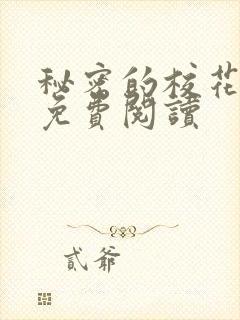 秘密的校花
免費閱讀
貳爺